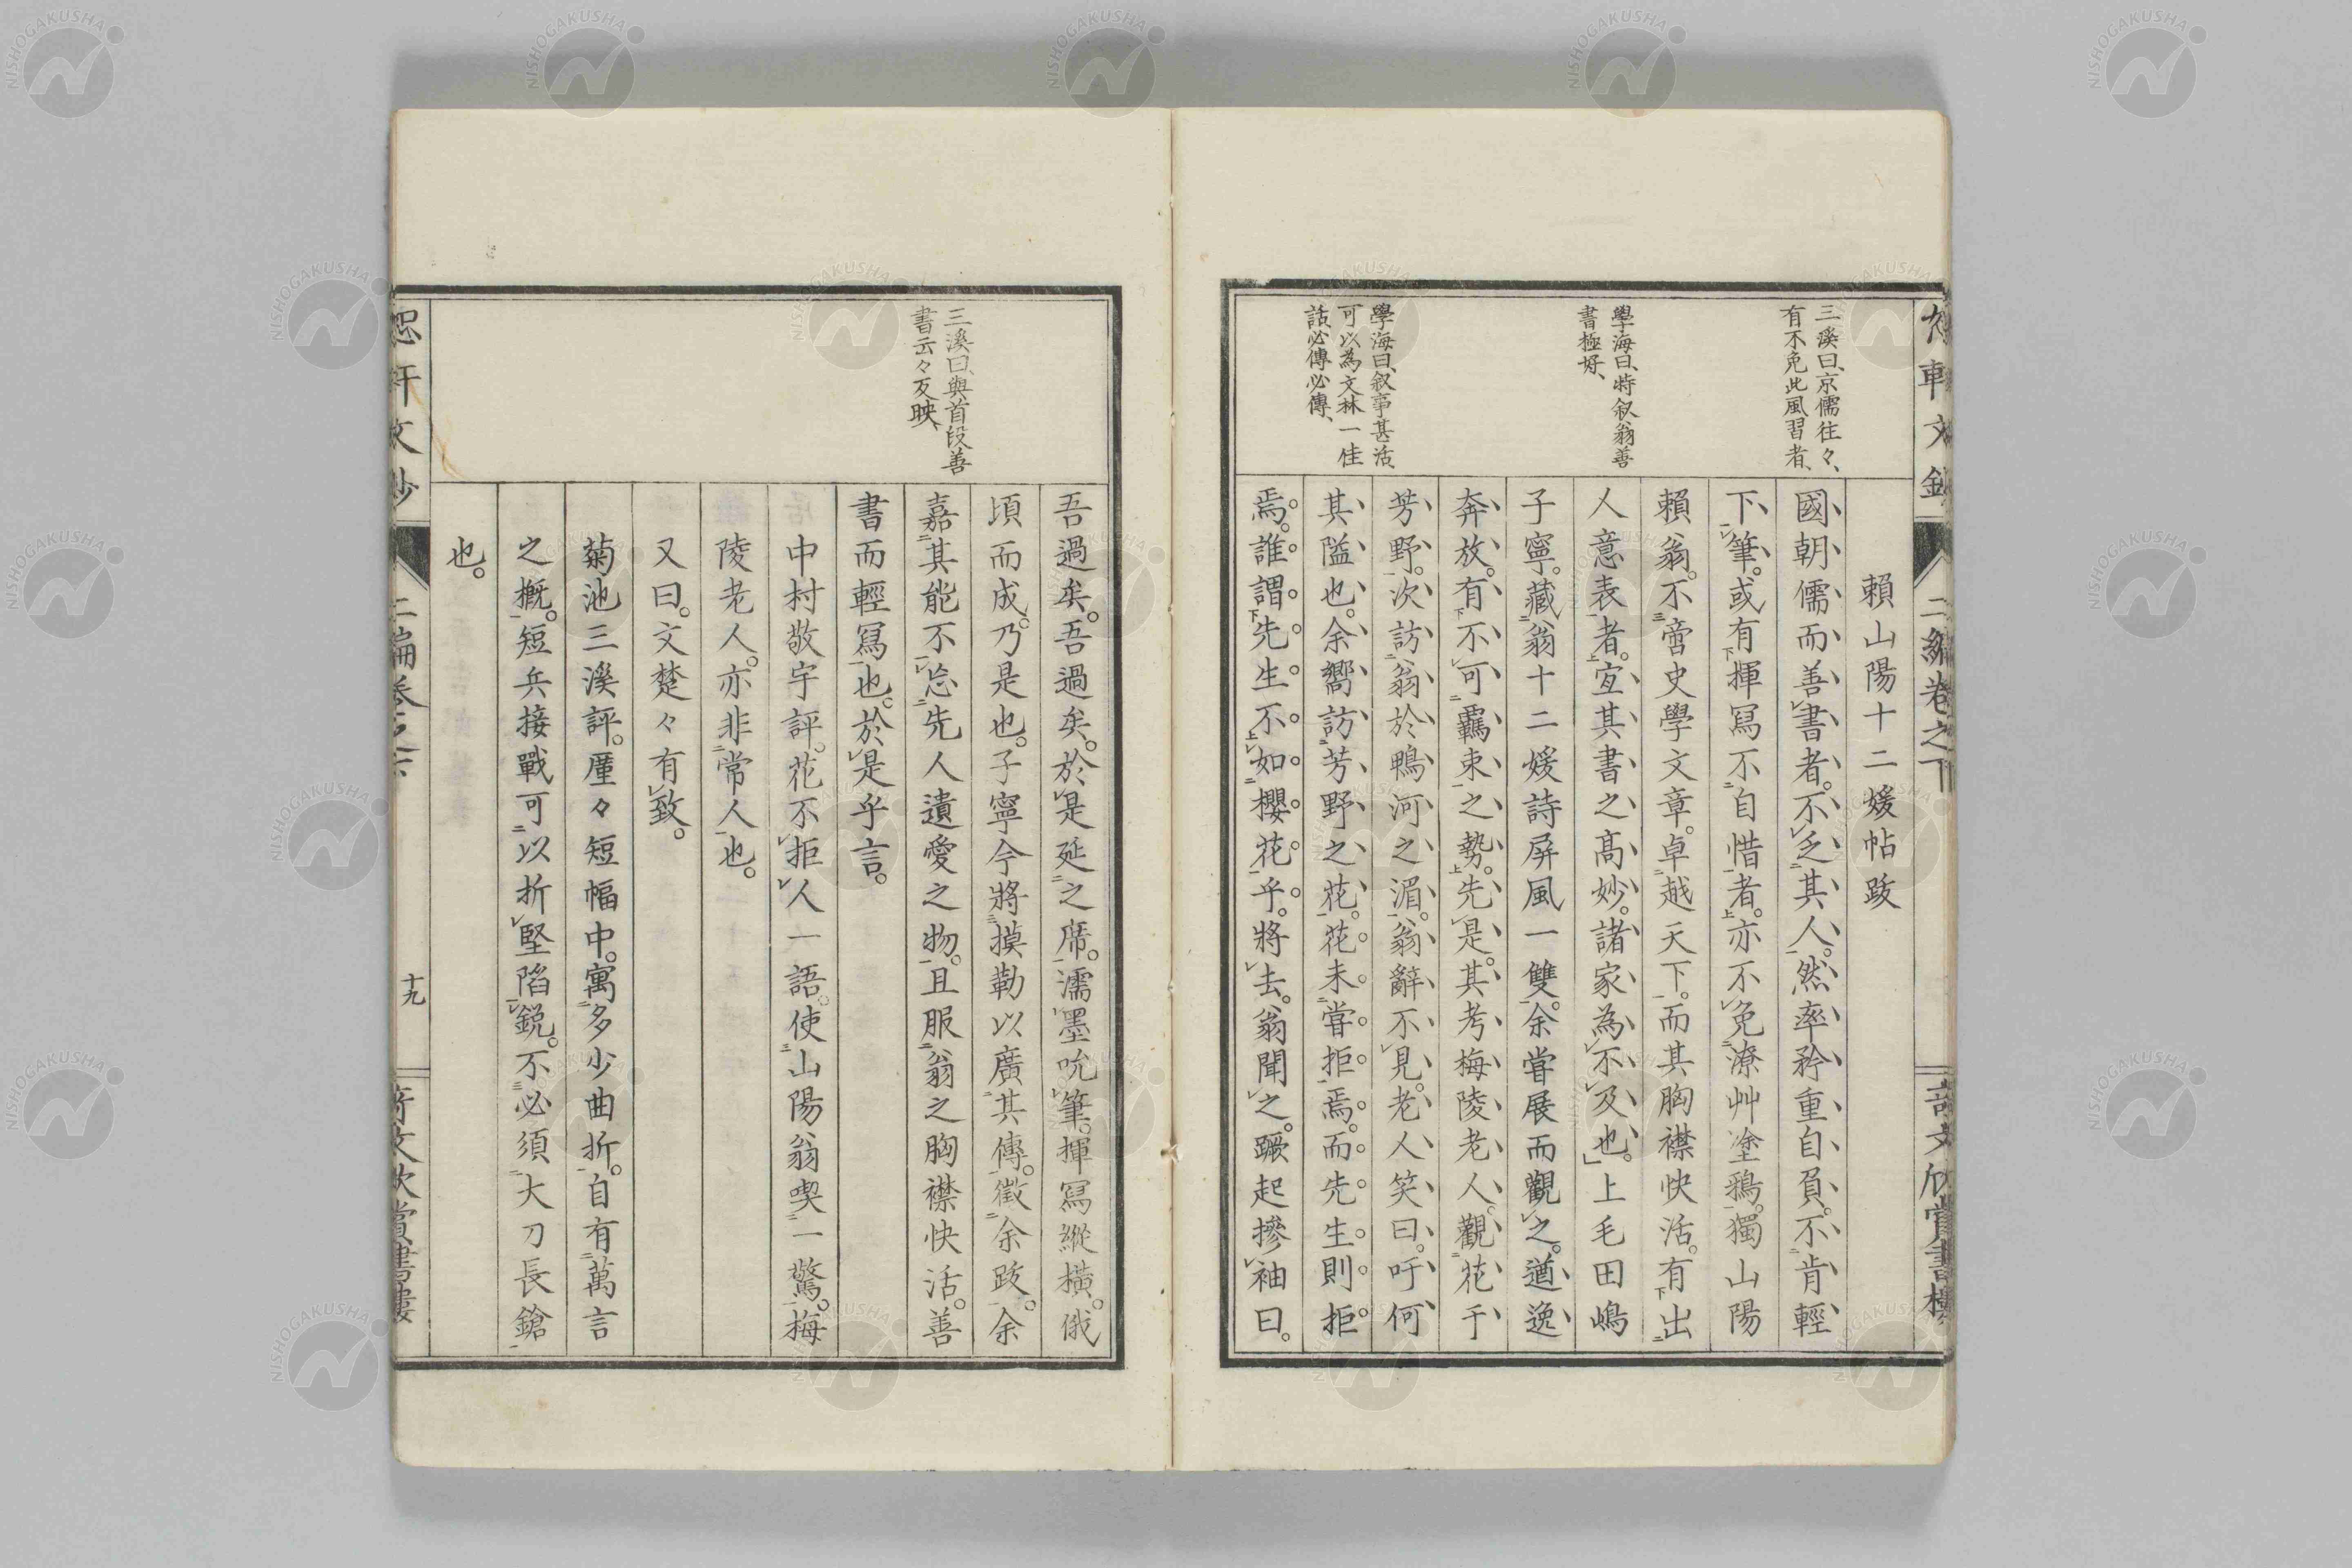 賴山陽十二媛帖跋
國朝儒而善書者。不乏其人。然率矜重自負。不肯輕
下筆。或有揮冩不自惜者。亦不免潦艸塗鴉。獨山陽
賴翁。不啻史學文章。卓越天下。而其胸襟快活。有出
人意表者。宜其書之高妙。諸家為不及也。」上毛田嶋
子寧。藏翁十二媛詩屏風一雙。余嘗展而觀之。遒逸
奔放。有不可羈束之勢。先是。其考梅陵老人。觀花于
芳野。次訪翁於鴨河之湄。翁辭不見。老人笑曰。吁何
其隘也。余嚮訪芳野之花。花未嘗拒焉。而先生則拒
焉。誰謂先生不如櫻花乎。將去。翁聞之。蹶起摻袖曰。
三溪曰、京儒往々、
有不免此風習者、
學海曰、特叙翁善
書極好、
學海曰、叙事甚活、
可以為文林一佳
話、必傳必傳、
二編卷之下
吾過矣。吾過矣。於是延之席。濡墨吮筆。揮冩縱橫。俄
頃而成。乃是也。子寧今將摸勒以廣其傳。徵余跋。余
嘉其能不忘先人遺愛之物。且服翁之胸襟快活。善
書而輕冩也。於是乎言。
中村敬宇評。花不拒人一語。使山陽翁喫一驚。梅
陵老人。亦非常人也。
又曰。文楚々有致。
菊池三溪評。厪々短幅中。寓多少曲折。自有萬言
之概。短兵接戰可以折堅陷銳。不必須大刀長鎗
也。
三溪曰、與首段善
書云々反映、
十九
NISHOGAKUSHA